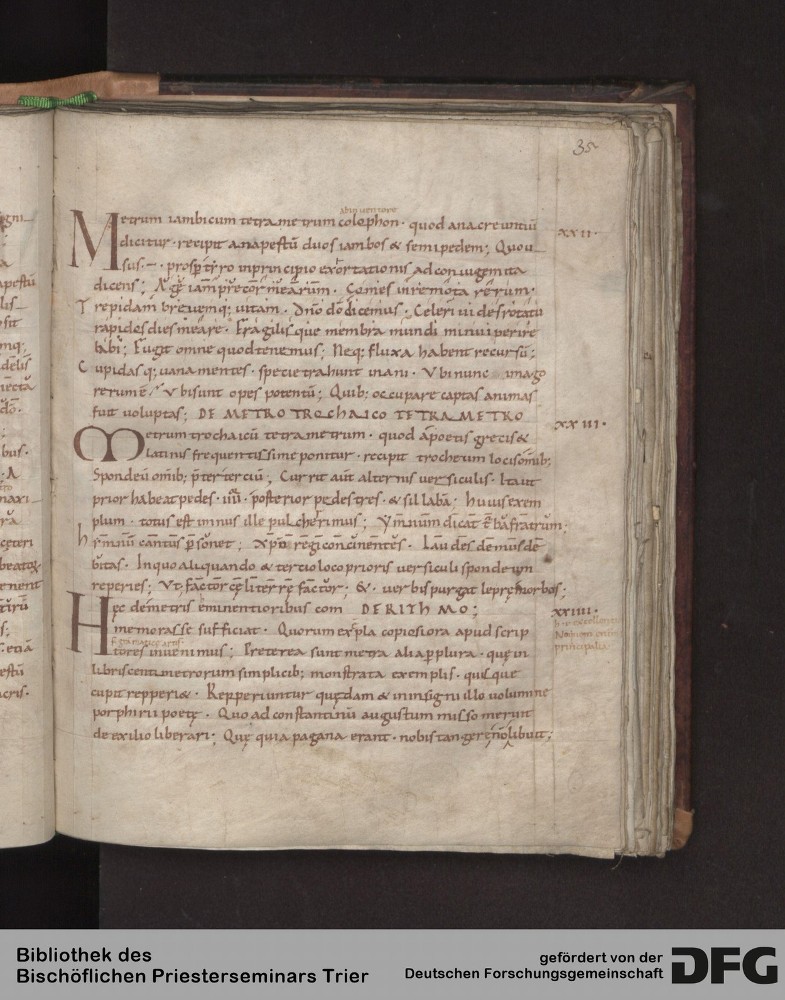 35
ab inventore
Metrum iambicum tetrametrum colophon · quod anacreuntiū
xxii·
dicitur · recipit anapestū duos iambos & semipedem; Quo u
sus · prosp̄ tyro in principio exortationis ad coniugem ita
dicens; Age iam p̄cor mearum · Comes inremota rerum·
Trepidam breuemq; uitam · Dn̄o dō dicemus · Celeri uides rotatu
rapidos dies meare · Fragilisque membra mundi minui perire
labi; Fugit omne quod tenemus; Neq; fluxa habent recursū;
Cupidas q; uana mentes · specie trahunt inani · Ubi nunc imago
rerum ē; Ubi sunt opes potentū; Quib; occupare captas animas
fuit uoluptas; DE METRO TROCHAICO TETRAMETRO
xxiii·
Metrum trochaicū tetrametrum · quod a poetis grecis &
latinis frequentissime ponitur · recipit trocheum locis omīb;
Spondeū omīb; p̄ter tertiū; Currit aūt alternis uersiculis · Ita ut
prior habeat pedes · iiii · posterior pedes tres · & sillabā · huius exem
plum · totus est imnus ille pulcherimus; Ymnum dicat turba fratrum;
hymnū cantus p̄sonet; Xp̄o regi concinentes · Laudes demus de
bitas · In quo aliquando & tertio loco prioris uersiculi spondeum
reperies; Ut, factor cęli terrę factor; &· uerbis purgat leprę morbos;
Hęc de metris eminentioribus com DE RITHMO;
xxiiii·
memorasse sufficiat · Quorum exēpla copiosiora apud scrip
tores inuenimus; Preterea sunt metra alia p̄plura · quę in
libris centimetrorum simplicib; monstrata exemplis · quisque
cupit repperi& · Repperiuntur quędam & in insigni illo uolumine
porphirii poetę · Quo ad constantinū augustum misso meruit
de exilio liberari; Quę quia pagana erant · nobis tangere nō libuit;
Bibliothek des
Bischöflichen Priesterseminars Trier
gefördert von der
Deutschen Forschungsgemeinschaft
DFG